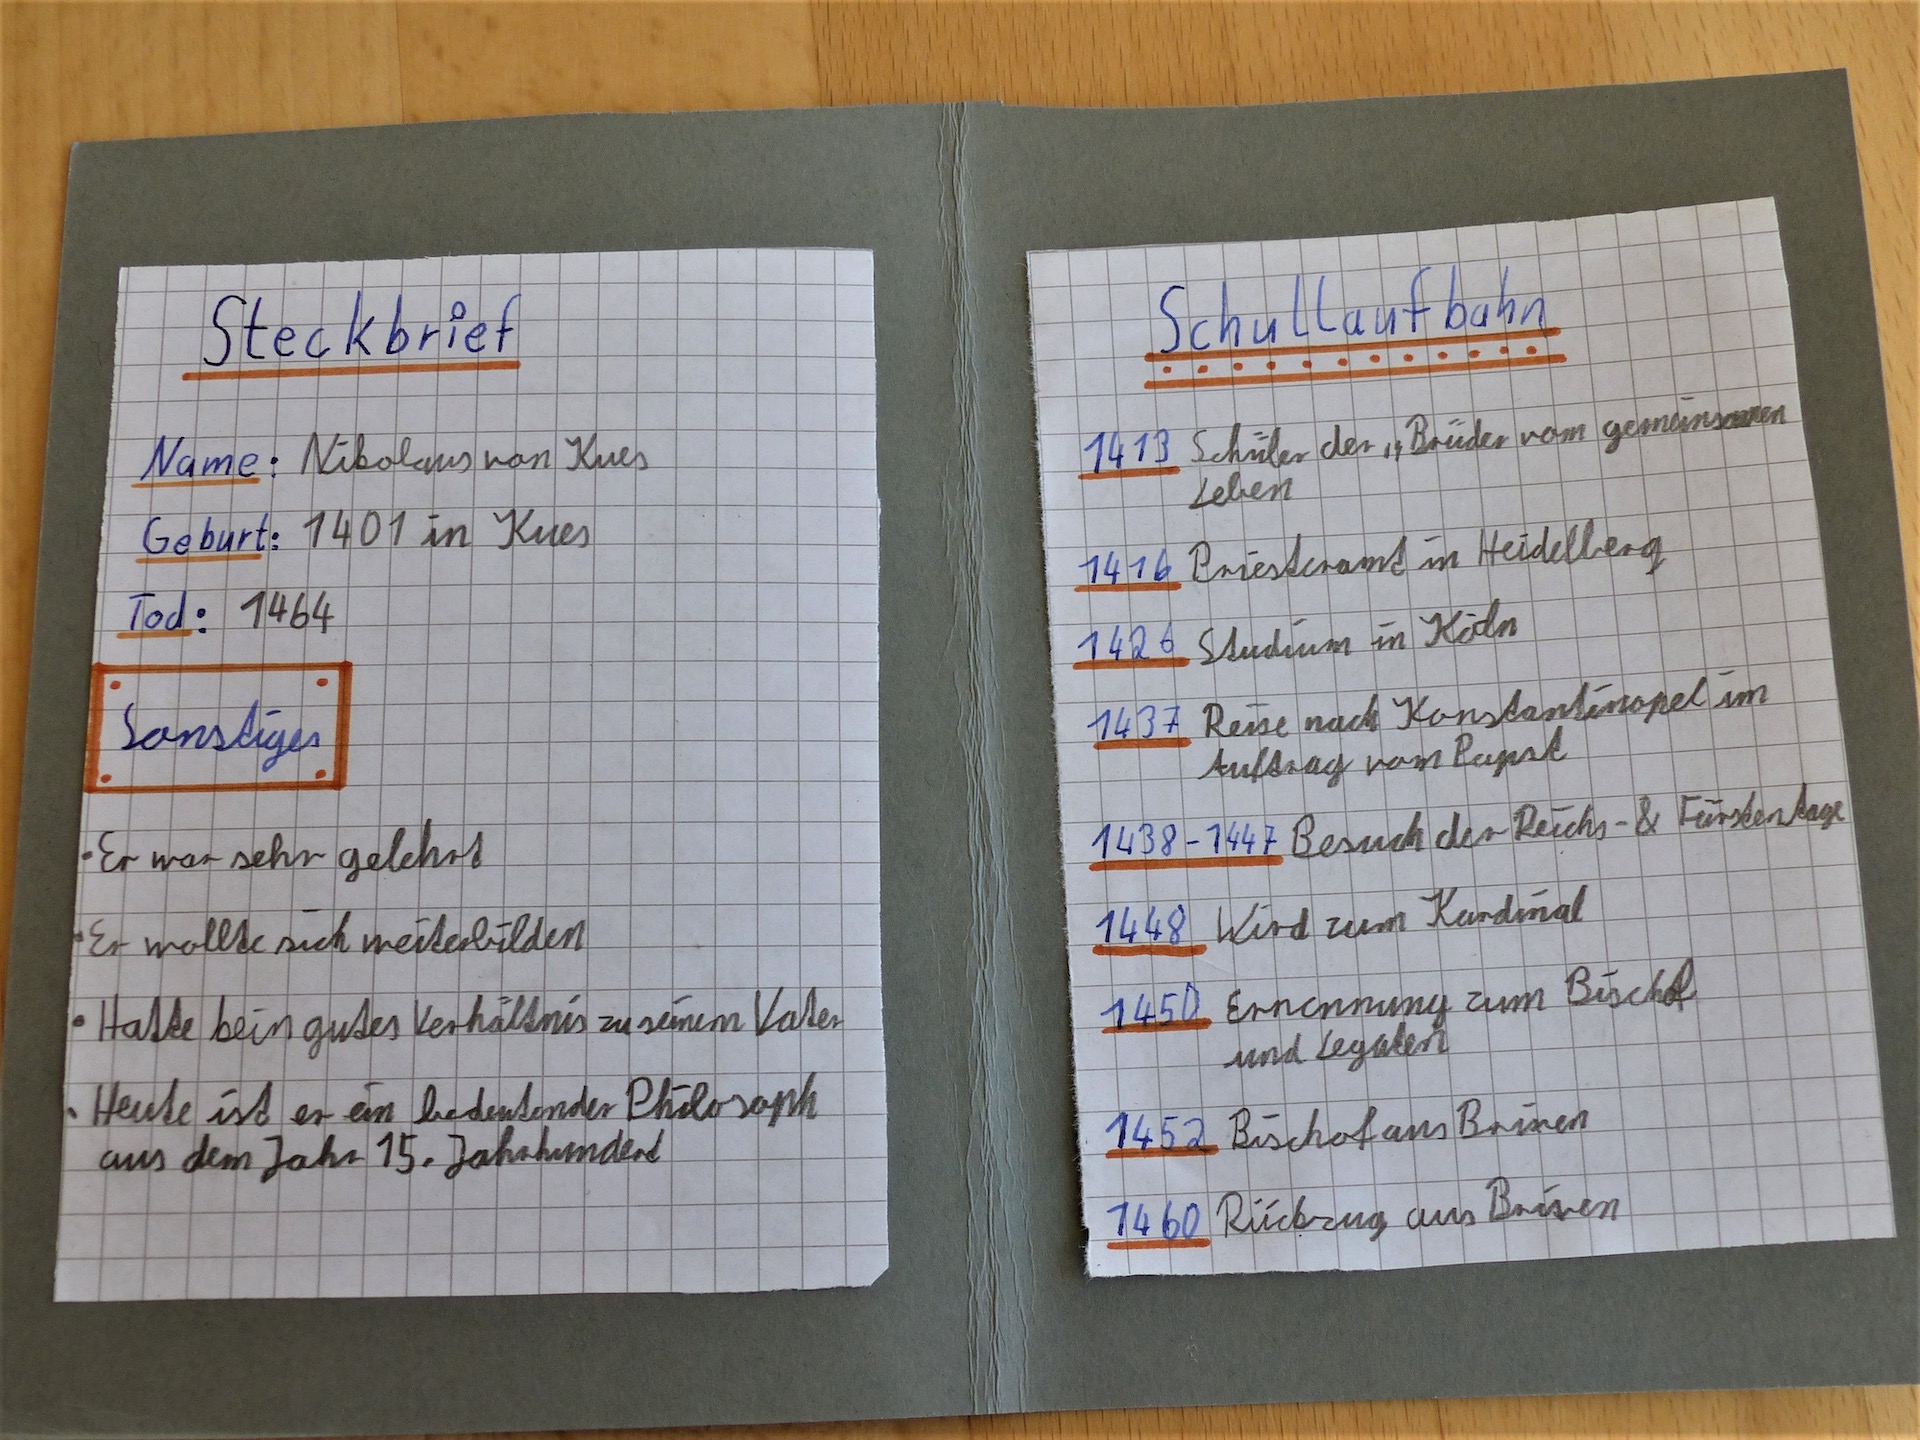 Steckbrief
Name: Nikolaus von Kues
Geburt: 1401 in Kues
Tod: 1464
Sonstiges
• Er war sehr gelehrt
• Er wollte sich weiterbilden
• Hatte kein gutes Verhältnis zu seinem Vater
• Heute ist er ein bedeutender Philosoph
aus dem Jahr 15. Jahrhundert
Schullaufbahn
1413 Schüler der „Brüder vom gemeinsamen
Leben
1416 Priesteramt in Heidelberg
1426 Studium in Köln
1437 Reise nach Konstantinopel im
Auftrag vom Papst
1438-1447 Besuch der Reichs- & Fürstentage
1448 Wird zum Kardinal
1450 Ernennung zum Bischof
und Legaten
1452 Bischof aus Brixen
1460 Rückzug aus Brixen